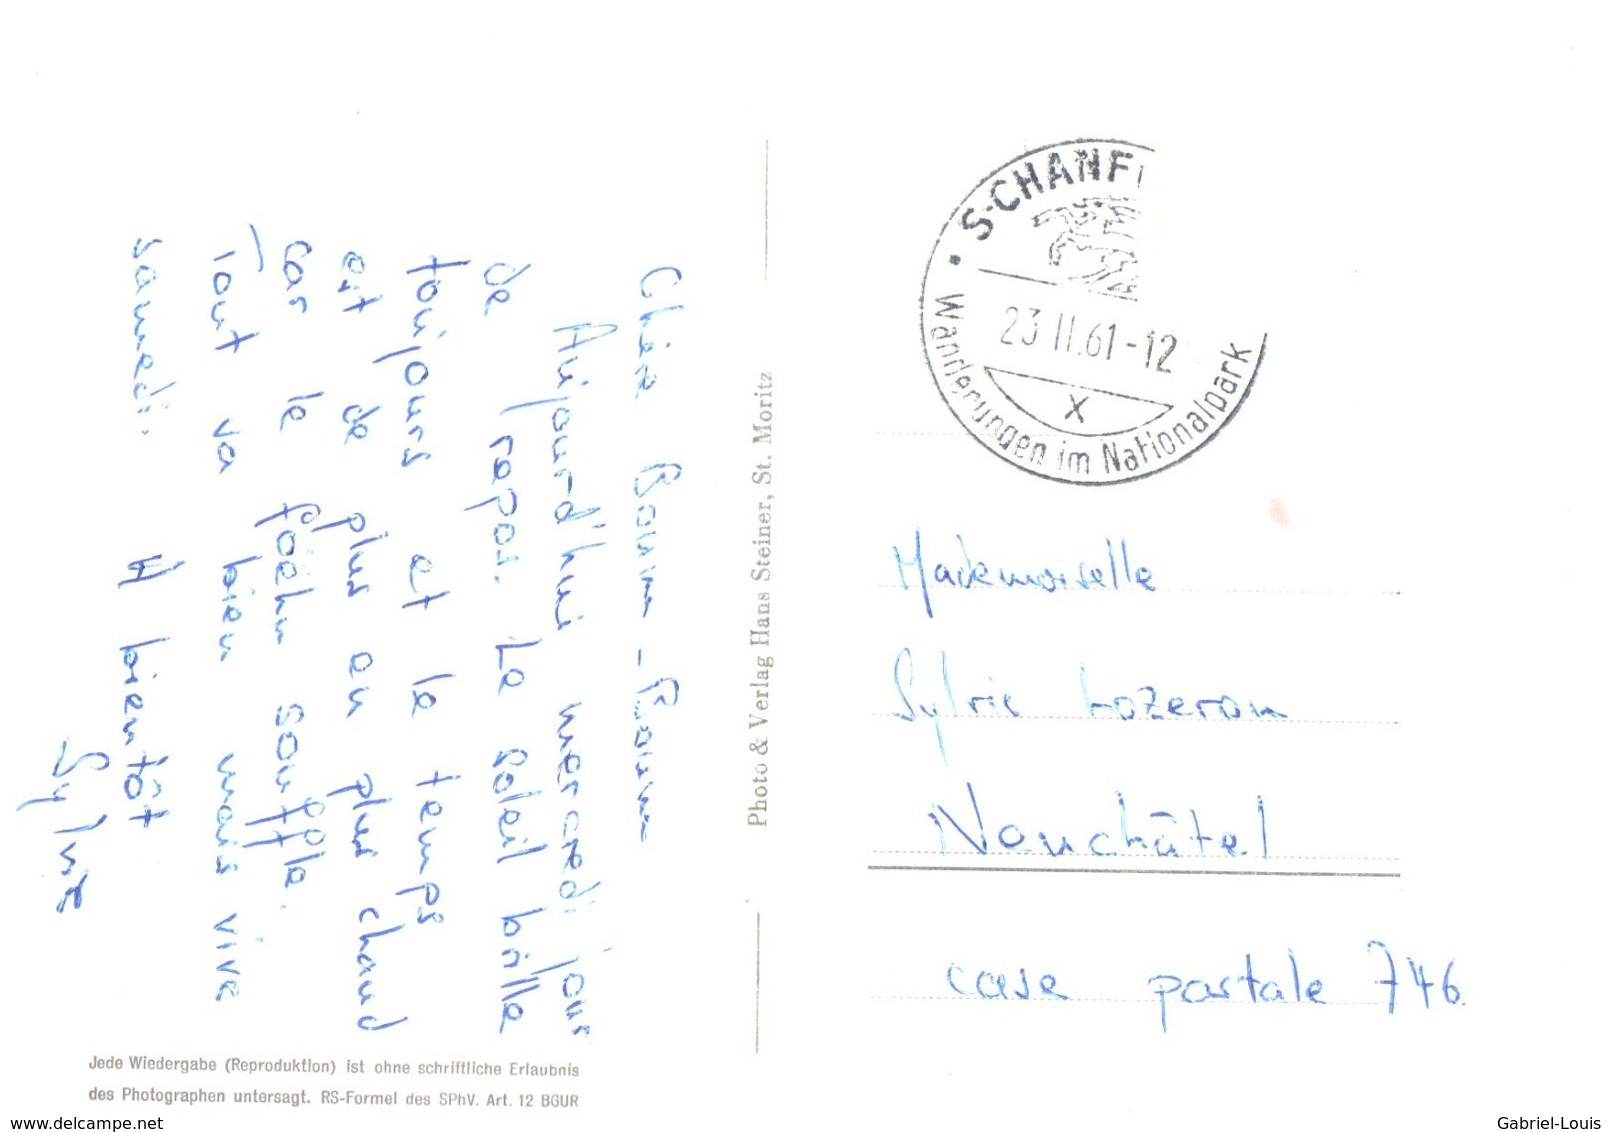 Chère Boum-Boum
Aujourd'hui mercredi jour
de repos. Le soleil brille
toujours et le temps
est de plus en plus chaud
car le föehn souffle.
Tout va bien mais vive
samedi. A bientôt
Sylvie
Photo & Verlag Hans Steiner, St. Moritz
Jede Wiedergabe (Reproduktion) ist ohne schriftliche Erlaubnis
des Photographen untersagt. RS-Formel des SPhV. Art. 12 BGUR
S-CHANF
23 II.61-12
X
Wanderungen im Nationalpark
Mademoiselle
Sylvie Lozeron
Neuchâtel
case postale 746
delcampe.net
Gabriel-Louis